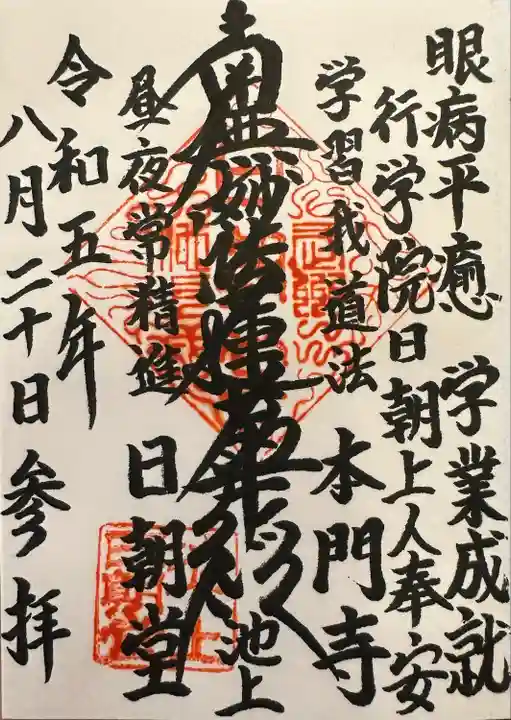 眼病平癒 学業成就
行学院日朝上人奉安
学習我道法 本門寺
池上
南無妙法蓮華経
昼夜常精進 日朝堂
令和五年
八月二十日 参拝